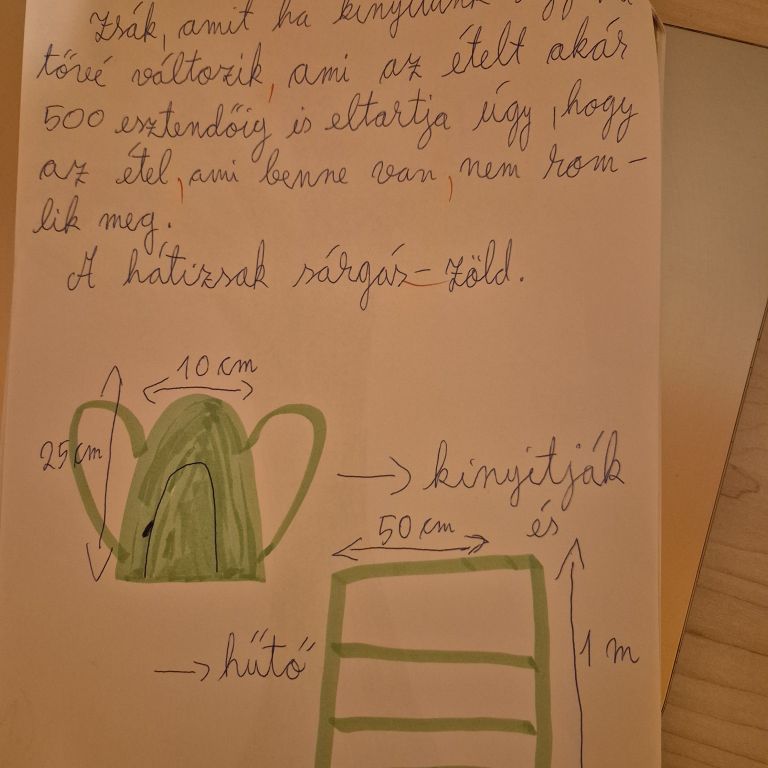 zsák, amit ha kinyitunk
tővé változik, ami az ételt akár
500 esztendőig is eltartja úgy, hogy
az étel, ami benne van, nem rom-
lik meg.
A hátizsak sárgás-zöld.
10 cm
25 cm
→ kinyitják
és
50 cm
→ hűtő
1 m